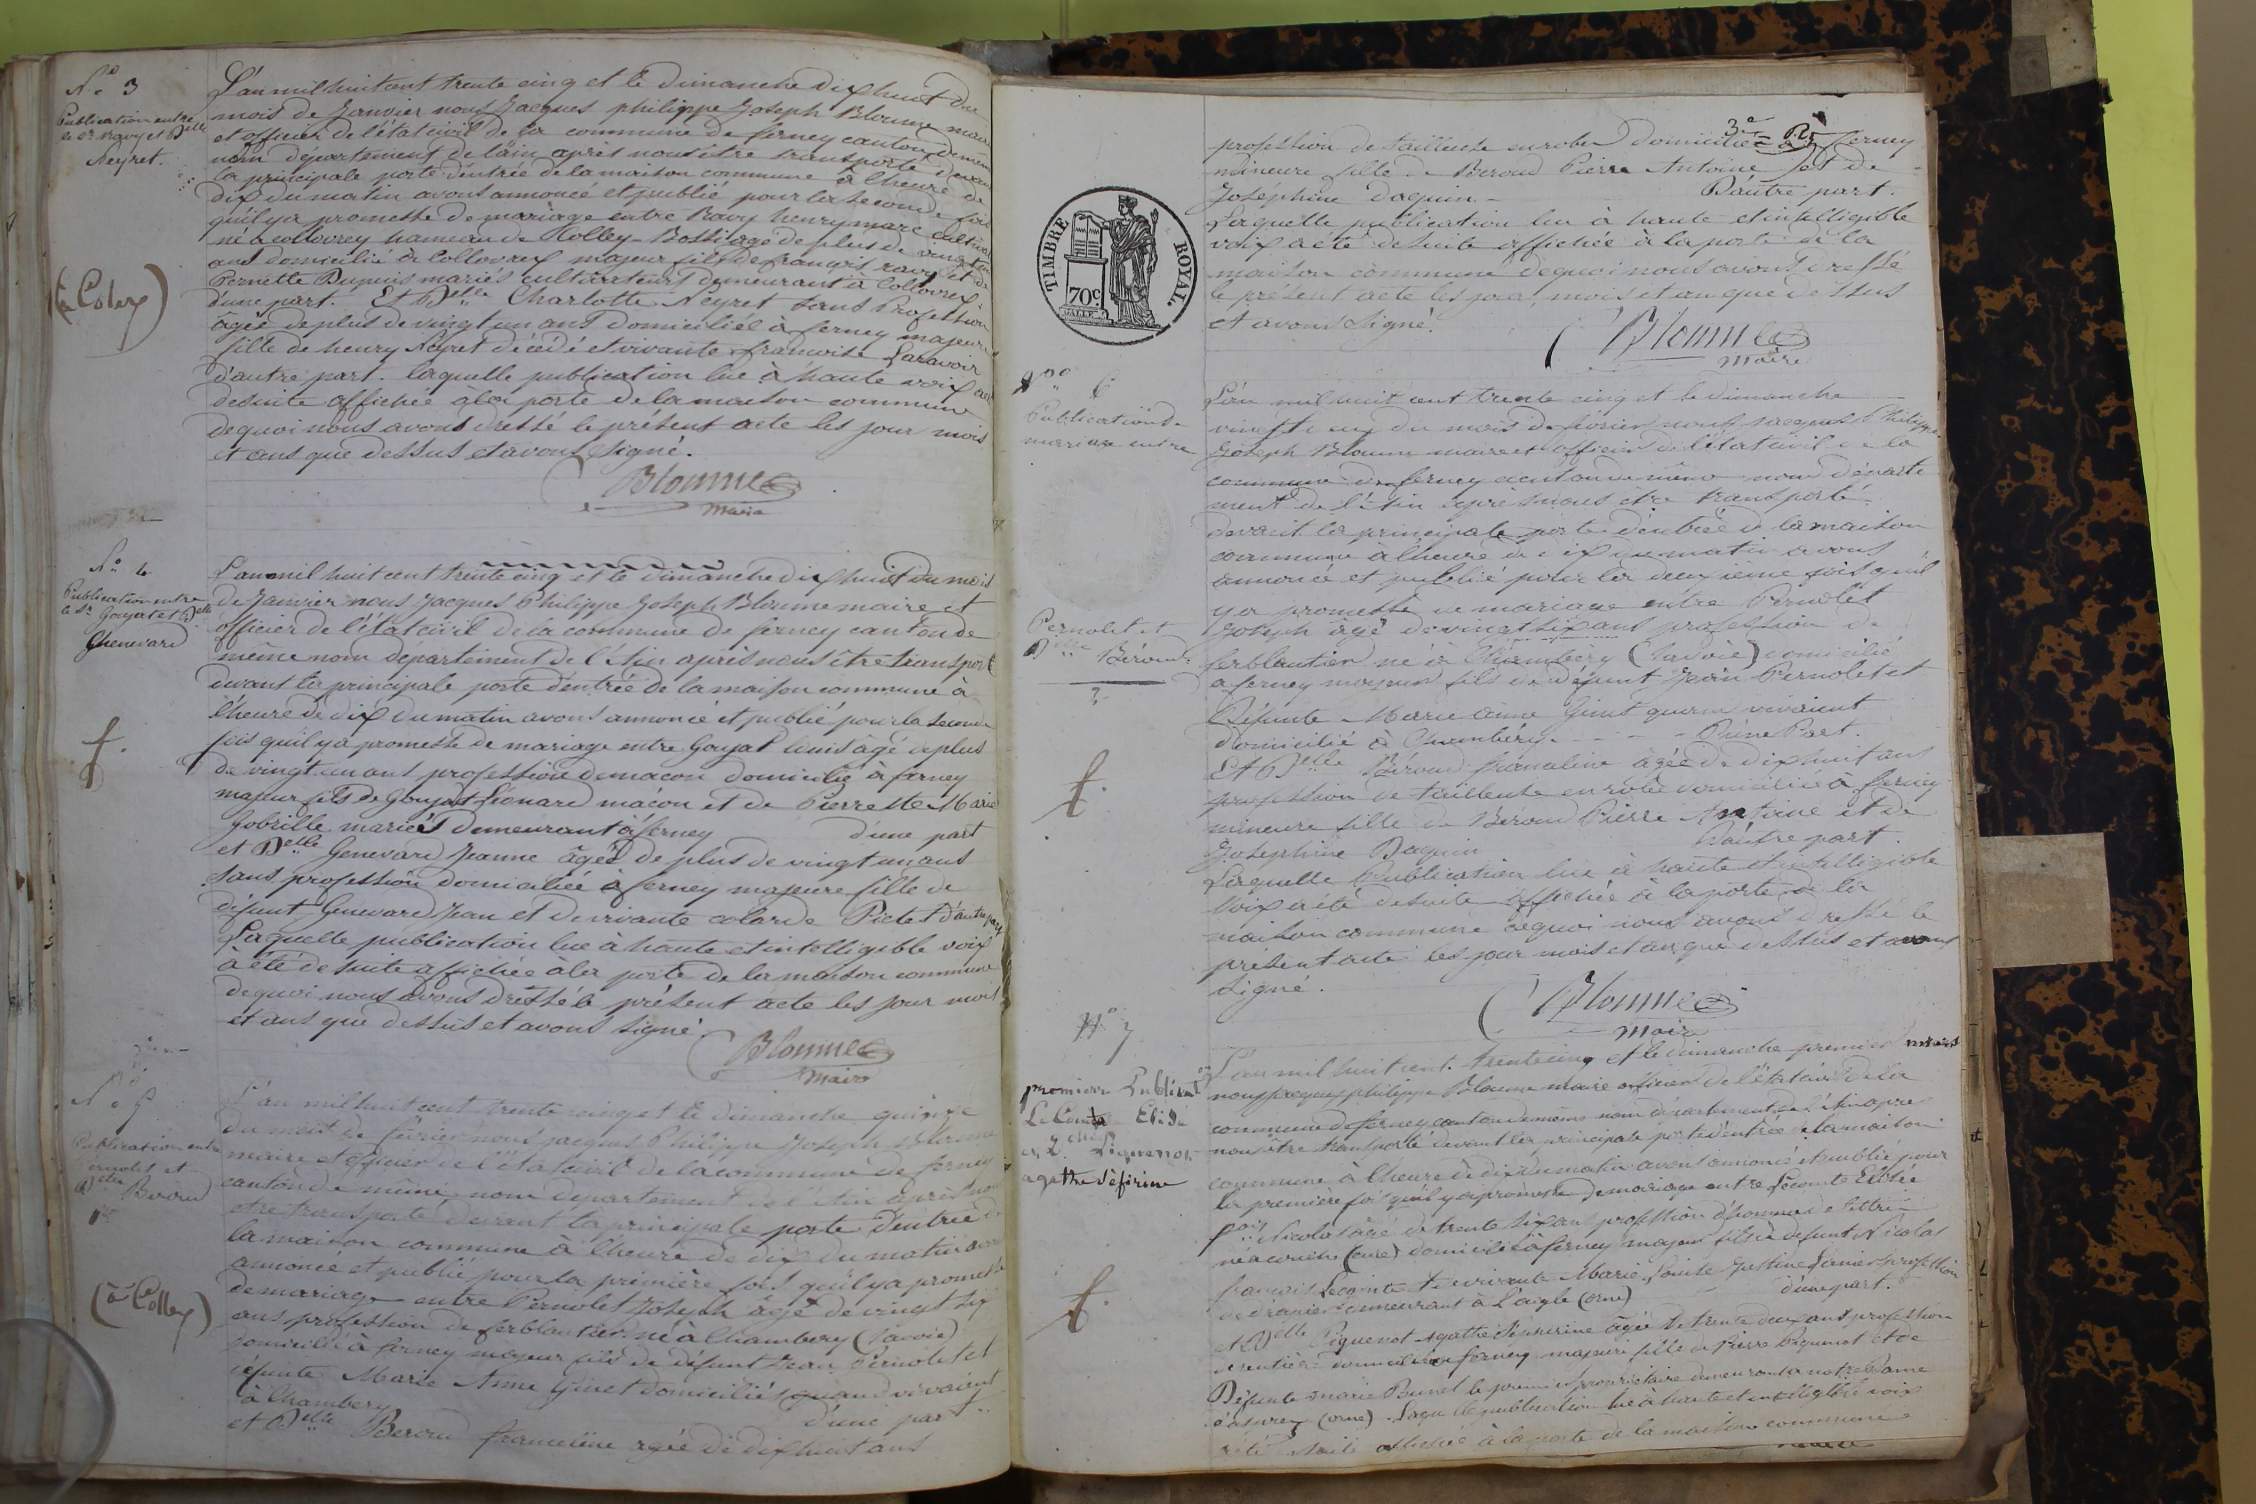 N.° 3
Publication entre
le Sr. Ravy et Delle
Neyret.
(à Colex)
L'an mil huit cent trente cinq et le Dimanche dix huit du
mois de Janvier nous Jacques philippe Joseph Bloume maire
et officier de l'état civil de la commune de ferney canton de même
nom département de l'ain après nous être transporté devant
la principale porte d'entrée de la maison commune à l'heure de
dix du matin avons annoncé et publié pour la seconde fois
qu'il y a promesse de mariage entre Ravy henry marc cultivateur
né à collovrey hameau de Bossy agé de plus de vingt un
ans domicilié à collovrex majeur fils de françois ravy et de
Pernette Dupuis mariés cultivateurs demeurant à Collovrex.
d'une part. Et Delle Charlotte Neyret sans Profession
âgée de plus de vingt un ans domiciliée à ferney majeure
fille de henry Neyret décédé et vivante françoise Laravoir
d'autre part. laquelle publication lue à haute voix a été
desuite affichée à la porte de la maison commune
dequoi nous avons dressé le présent acte les jour mois
et ans que dessus et avons signé.
Bloume
Maire
N.° 4
Publication entre
le Sr. Goujat et Delle
Genevard
L'an mil huit cent trente cinq et le dimanche dix huit du mois
de Janvier nous Jacques Philippe Joseph Bloume maire et
officier de l'état civil de la commune de ferney canton de
même nom département de l'Ain après nous être transporté
devant la principale porte d'entrée de la maison commune à
l'heure de dix du matin avons annoncé et publié pour la seconde
fois qu'il y a promesse de mariage entre Goujat Louis âgé de plus
de vingt un ans profession de maçon domicilié à ferney
majeur fils de Goujat Léonard maçon et de Pierrette Marie
Gobrille mariés demeurant à ferney d'une part
et Delle Genevard Jeanne âgée de plus de vingt un ans
sans profession domiciliée à ferney majeure fille de
défunt Genevard Jean et de vivante colarde Pictet d'autre part
Laquelle publication lue à haute et intelligible voix
a été desuite affichée à la porte de la maison commune
dequoi nous avons dressé le présent acte les jour mois
et ans que dessus et avons signé
Bloume
Maire
N.° 5
Publication entre
Pernolet et
Delle Beroud
(à Collex)
L'an mil huit cent trente cinq et le dimanche quinze
du mois de février nous jacques Philippe Joseph Bloume
maire et officier de l'état civil de la commune de ferney
canton de même nom département de l'Ain après nous
etre transporté devant la principale porte d'entrée de
la maison commune à l'heure de dix du matin avons
annoncé et publié pour la première fois qu'il y a promesse
de mariage entre Pernolet Joseph âgé de vingt six
ans profession de ferblantier né à Chambery (Savoie)
domicilié à ferney majeur fils de défunt Jean Pernolet et
défunte Marie Anne Ginet domiciliés quand vivaient
à Chambery d'une part
et Delle Beroud franceline agée de dix huit ans
3e Pn
profession de tailleuse en robes domiciliée à ferney
mineure fille de Beroud Pierre Antoine et de
Joséphine Daquin. D'autre part.
Laquelle publication lue à haute et intelligible
voix a été desuite affichée à la porte de la
maison commune dequoi nous avons dressé
le présent acte les jour, mois et an que dessus
et avons signé.
Bloume
Maire
TIMBRE ROYAL
70c
N° 6
Publication de
mariage entre
Pernolet et
Delle Béroud
L'an mil huit cent trente cinq et le dimanche
vingt deux du mois de février nous jacques Philippe
Joseph Bloume maire et officier de l'état civil de la
commune de ferney canton de même nom départe
ment de l'Ain après nous être transporté
devant la principale porte d'entrée de la maison
commune à l'heure de dix du matin avons
annoncé et publié pour la deuxième fois qu'il
y a promesse de mariage entre Pernolet
Joseph âgé de vingt six ans profession de
ferblantier né à Chambéry (Savoie) domicilié
à ferney majeur fils de défunt Jean Pernolet et
Défunte Marie anne Ginet quand vivaient
domicilié à Chambéry. D'une Part.
Et Delle Béroud franceline âgée de dix huit ans
profession de tailleuse en robe domiciliée à ferney
mineure fille de Béroud Pierre Antoine et de
Josephine Daquin D'autre part
Laquelle Publication lue à haute et intelligible
Voix a été desuite affichée à la porte de la
maison commune dequoi nous avons dressé le
présent acte les jour mois et an que dessus et avons
signé.
Bloume
Maire
N° 7
premiere Publication
Le Comte Elisé
et Delle Piquenot
agathe Séfirine
L'an mil huit cent trente cinq et le dimanche premier mars
nous jacques philippe Bloume maire officier de l'état civil de la
commune de ferney canton de même nom département de l'Ain apres
nous être transporté devant la principale porte d'entrée de la maison
commune à l'heure de dix du matin avons annoncé et publié pour
la premiere fois qu'il y a promesse de mariage entre Lecomte Elisée
fois Nicolas âgé de trente six ans profession d'homme de lettre
né à conche (eure) domicilié à ferney majeur fils de défunt Nicolas
françois Lecomte et vivante Marie Louise Justine Lanier profession
de drapier demeurant à L'aigle (orne) d'une part.
et Delle Piquenot Agathe Séphirine âgée de trente deux ans profession
de rentière domiciliée à ferney majeure fille de Pierre Piquenot et de
Défunte marie Brunel le premier propriétaire demeurant à notre Dame
d'aspres (orne). Laquelle publication lue à haute et intelligible voix
a été desuite affichée à la porte de la maison commune